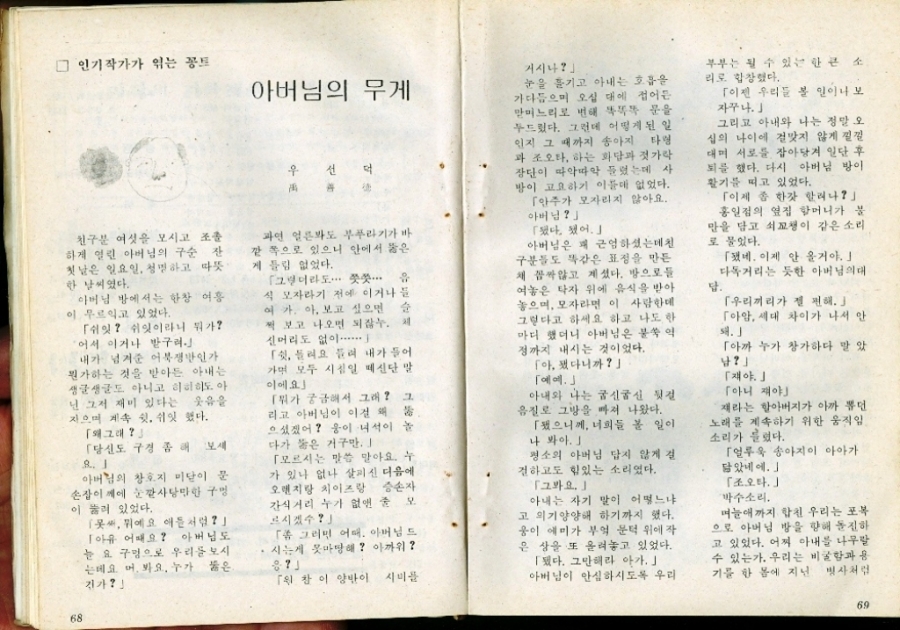 □ 인기작가가 엮는 꽁트
아버님의 무게
우 선 덕
禹 善 德
친구분 여섯을 모시고 조촐
하게 열린 아버님의 구순 잔
칫날은 일요일, 청명하고 따뜻
한 날씨였다.
아버님 방에서는 한창 여흥
이 무르익고 있었다.
「쉬잇? 쉬잇이라니 뭐가?
어서 이거나 받구려.」
내가 넘겨준 어북쟁반인가
뭔가하는 것을 받아든 아내는
생글생글도 아니고 히히히도 아
닌 그저 재미 있다는 웃음을
지으며 계속 쉿, 쉬잇 했다.
「왜그래?」
「당신도 구경 좀 해 보세
요.」
아버님의 창호지 미닫이 문
손잡이께에 눈깔사탕만한 구멍
이 뚫려 있었다.
「못써, 뭐예요 애들처럼?」
「아유 어때요? 아버님도
늘 요 구멍으로 우리들보시
는데요 머. 봐요, 누가 뚫은
건가?」
68
과연 얼른봐도 부푸라기가 바
깥 쪽으로 있으니 안에서 뚫은
게 틀림 없었다.
「그렇더라도… 쯧쯧… 음
식 모자라기 전에 이거나 들
여 가. 아, 보고 싶으면 슬
쩍 보고 나오면 되잖누. 체
신머리도 없이……」
「쉿, 들려요 들려 내가 들어
가면 모두 시침일 떼신단 말
이에요」
「뭐가 궁금해서 그래? 그
리고 아버님이 이걸 왜 뚫
으셨겠어? 웅이 녀석이 놀
다가 뚫은 거구만.」
「모르시는 말씀 말아요. 누
가 있나 없나 살피신 다음에
오랜지랑 치이즈랑 증손자
간식거리 누가 없앤 줄 모
르시겠수?」
「좀 그러면 어때. 아버님 드
시는게 못마땅해? 아까워?
응?」
「원 참 이 양반이 시비를
거시나?」
눈을 흘기고 아내는 호흡을
가다듬으며 오십 대에 접어든
맏며느리로 변해 똑똑똑 문을
두드렸다. 그런데 어떻게된 일
인지 그 때까지 송아지 타령
과 조오타, 하는 화답과 젓가락
장단이 따악따악 들렸는데 사
방이 고요하기 이를데 없었다.
「안주가 모자리지 않아요.
아버님?」
「됐다, 됐어.」
아버님은 왜 근엄하셨는데친
구분들도 똑같은 표정을 만든
채 몹싸않고 계셨다. 방으로들
여놓은 탁자 위에 음식을 받아
놓으며, 모자라면 이 사람한테
그렇다고 하세요 하고 나도 한
마디 했더니 아버님은 불쑥 역
정까지 내시는 것이었다.
「아, 됐다니까?」
「예예.」
아내와 나는 굽신굽신 뒷걸
음질로 그방을 빠져 나왔다.
「됐으니께, 너희들 볼 일이
나 봐아.」
평소의 아버님 답지 않게 걸
걸하고도 힘있는 소리였다.
「그봐요.」
아내는 자기 말이 어떻느냐
고 의기양양해 하기까지 했다.
웅이 에미가 부엌 문턱 위에작
은 상을 또 올려놓고 있었다.
「됐다. 그만해라 아가.」
아버님이 안심하시도록 우리
부부는 될 수 있는 한 큰 소
리로 합창했다.
「이젠 우리들 볼 일이나 보
자꾸나.」
그리고 아내와 나는 정말 오
십의 나이에 걸맞지 않게 낄낄
대며 서로를 잡아당겨 일단 후
퇴를 했다. 다시 아버님 방이
활기를 띠고 있었다.
「이제 좀 한잣 할려나?」
홍일점의 옆집 할머니가 불
만을 담고 쇠꼬쟁이 같은 소리
로 물었다.
「됐네. 이제 안 올거야.」
다독거리는 듯한 아버님의대
답.
「우리끼리가 젤 편해.」
「아암, 세대 차이가 나서 안
돼.」
「아까 누가 창가하다 말 았
남?」
「쟤야.」
「아니 재야」
쟤라는 할아버지가 아까 뽑던
노래를 계속하기 위한 움직임
소리가 들렸다.
「얼루욱 송아지이 아아가
닮았네에.」
「조오타.」
박수소리.
며늘애까지 합친 우리는 포복
으로 아버님 방을 향해 돌진하
고 있었다. 어찌 아내를 나무랄
수 있는가. 우리는 비굴함과 용
기를 한 몸에 지닌 병사처럼
69